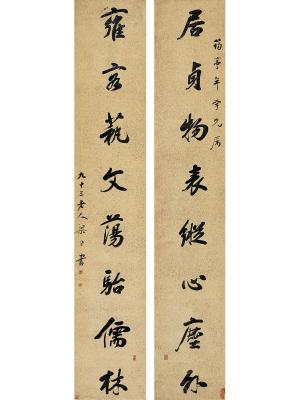 筠亭年學兄属
居貞物表縱心塵外
雍容蓺文蕩駘儒林
九十三老人梁同書